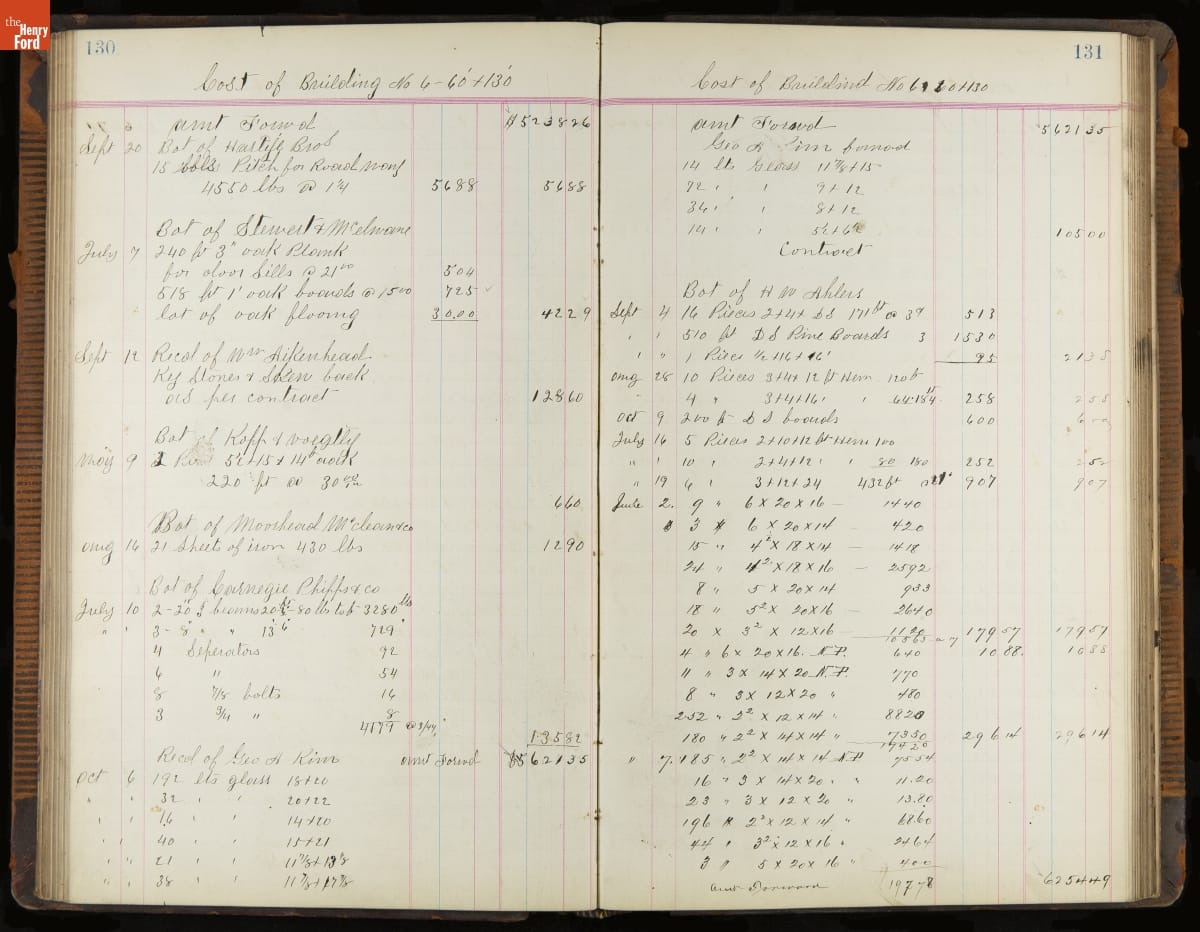 the Henry Ford
130
Cost of Building No 6-60'+130'
Amt Forwd $523826
Sept 20 Bot of Hastify Bros
15 bbls Pitch for Road way
4550 lbs @ 1¼ 5688 5688
Bot of Stewert & McElwane
July 7 240 ft 3" oak Plank
for door Sills @ 21 00 504
518 ft 1" oak boards @ 15 00 725
lot of oak flooring 3000 4229
Sept 12 Recd of Wm Aikenhead
Key Stones & back
as per contract 12860
Bot of Kopp & Voegtly
May 9 5½+15+14ft oak
220 ft @ 30 00 660
Bot of Moorhead McClean & Co
Aug 16 21 Sheets of iron 430 lbs 1290
Bot of Carnegie Phipps & Co
July 10 2-20" I beams 20 80 lbs to ft 3280 lbs
" " 3-8" " " 13'6" 729
4 Seperators 92
6 " 54
8 7/8 bolts 16
3 3/4 " 8
4179 13582
Recd of Geo A Rim Amt Forwd $562135
Oct 6 192 lts glass 18+20
" " 32 " " 20+22
" " 16 " " 14+20
" " 40 " " 15+21
" " 21 " " 11 7/8+13 7/8
" " 38 " " 11 7/8+17 7/8
131
Cost of Buildind No 6, 60+130
Amt Forwd 562135
Geo A Rim forward
14 lts Glass 11 7/8+15
72 " " 9+12
36 " " 8+12
14 " " 5½+6½ 10500
Contract
Bot of H W Ahlers
Sept 4 16 Pieces 2+4+ DS 171ft @ 3¢ 513
" " 510 ft DS Pine Boards 3 1530
" " 1 Piece ½+16+16' 95 2138
Aug 28 10 Pieces 3+4+12 ft Hem 120ft
4 " 3+4+16' " 64-184 258 258
Oct 9 200 ft DS boards 600 600
July 16 5 Pieces 2+10+12 ft Hem 100
" " 10 " 2+4+12 " " 80 180 252 252
" 19 6 " 3+12+24 432ft @ 21 907 907
June 2. 9 " 6 x 20 x 16 — 1440
3 " 6 x 20 x 14 — 420
15 " 4² x 18 x 14 — 1418
24 " 4² x 18 x 16 — 2592
8 " 5 x 20 x 14 933
18 " 5² x 20 x 16 — 2640
20 x 3² x 12 x 16 — 1120
10563 @ 17 17957 17957
4 " 6 x 20 x 16. N.P. 640 1088. 1088
11 " 3 x 14 x 20 N.P. 770
8 " 3 x 12 x 20 " 480
252 " 2² x 12 x 14 " 8820
180 " 2² x 14 x 14 " 7350 29614 29614
17420
" 7. 185 " 2² x 14 x 14 N.P 7554
16 " 3 x 14 x 20 " " 11.20
23 " 3 x 12 x 20 " 13.80
196 " 2² x 12 x 14 " 6860
44 " 3² x 12 x 16 " 2464
3 " 5 x 20 x 16 " 400
Amt Forward 19778 625449